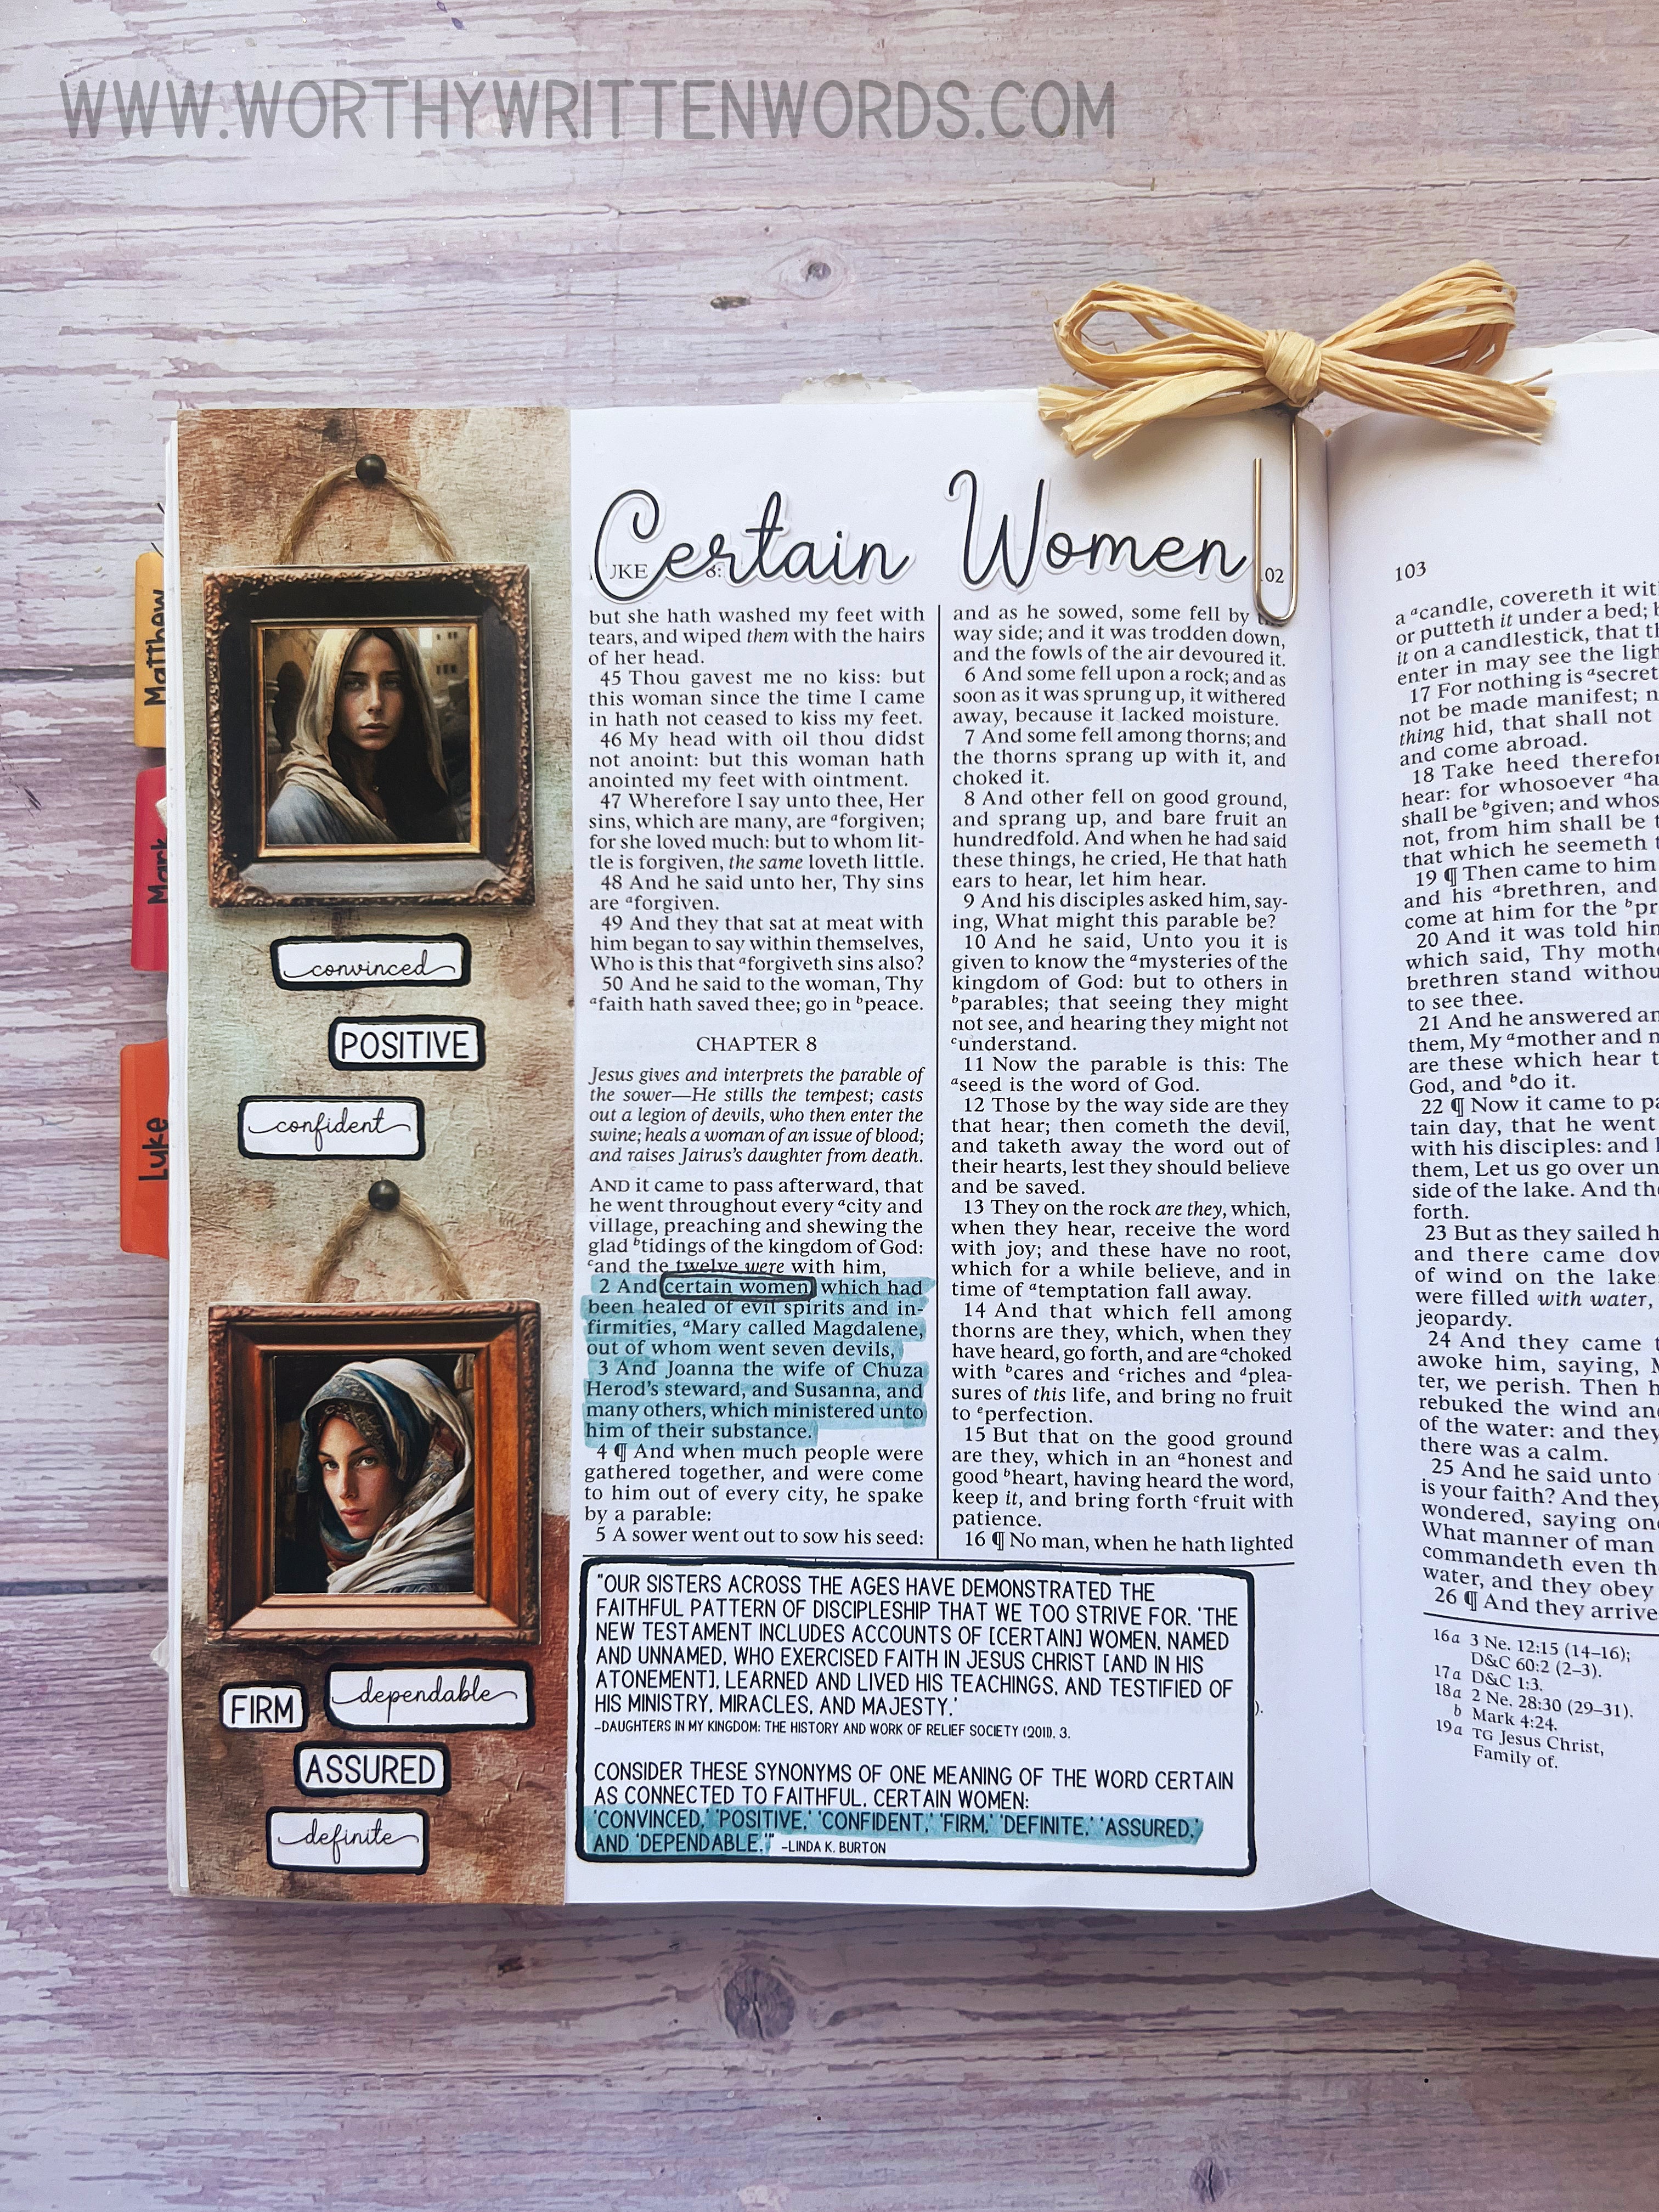 WWW.WORTHYWRITTENWORDS.COM
Certain Women
UKE 8: 02
Matthew
Mark
Luke
convinced
POSITIVE
confident
FIRM
dependable
ASSURED
definite
but she hath washed my feet with
tears, and wiped them with the hairs
of her head.
45 Thou gavest me no kiss: but
this woman since the time I came
in hath not ceased to kiss my feet.
46 My head with oil thou didst
not anoint: but this woman hath
anointed my feet with ointment.
47 Wherefore I say unto thee, Her
sins, which are many, are aforgiven;
for she loved much: but to whom lit-
tle is forgiven, the same loveth little.
48 And he said unto her, Thy sins
are aforgiven.
49 And they that sat at meat with
him began to say within themselves,
Who is this that aforgiveth sins also?
50 And he said to the woman, Thy
afaith hath saved thee; go in bpeace.
CHAPTER 8
Jesus gives and interprets the parable of
the sower—He stills the tempest; casts
out a legion of devils, who then enter the
swine; heals a woman of an issue of blood;
and raises Jairus's daughter from death.
AND it came to pass afterward, that
he went throughout every acity and
village, preaching and shewing the
glad btidings of the kingdom of God:
cand the twelve were with him,
2 And certain women, which had
been healed of evil spirits and in-
firmities, aMary called Magdalene,
out of whom went seven devils,
3 And Joanna the wife of Chuza
Herod's steward, and Susanna, and
many others, which ministered unto
him of their substance.
4 ¶ And when much people were
gathered together, and were come
to him out of every city, he spake
by a parable:
5 A sower went out to sow his seed:
and as he sowed, some fell by
way side; and it was trodden down,
and the fowls of the air devoured it.
6 And some fell upon a rock; and as
soon as it was sprung up, it withered
away, because it lacked moisture.
7 And some fell among thorns; and
the thorns sprang up with it, and
choked it.
8 And other fell on good ground,
and sprang up, and bare fruit an
hundredfold. And when he had said
these things, he cried, He that hath
ears to hear, let him hear.
9 And his disciples asked him, say-
ing, What might this parable be?
10 And he said, Unto you it is
given to know the amysteries of the
kingdom of God: but to others in
bparables; that seeing they might
not see, and hearing they might not
cunderstand.
11 Now the parable is this: The
aseed is the word of God.
12 Those by the way side are they
that hear; then cometh the devil,
and taketh away the word out of
their hearts, lest they should believe
and be saved.
13 They on the rock are they, which,
when they hear, receive the word
with joy; and these have no root,
which for a while believe, and in
time of atemptation fall away.
14 And that which fell among
thorns are they, which, when they
have heard, go forth, and are achoked
with bcares and criches and dplea-
sures of this life, and bring no fruit
to eperfection.
15 But that on the good ground
are they, which in an ahonest and
good bheart, having heard the word,
keep it, and bring forth cfruit with
patience.
16 ¶ No man, when he hath lighted
"OUR SISTERS ACROSS THE AGES HAVE DEMONSTRATED THE
FAITHFUL PATTERN OF DISCIPLESHIP THAT WE TOO STRIVE FOR. 'THE
NEW TESTAMENT INCLUDES ACCOUNTS OF [CERTAIN] WOMEN, NAMED
AND UNNAMED, WHO EXERCISED FAITH IN JESUS CHRIST [AND IN HIS
ATONEMENT], LEARNED AND LIVED HIS TEACHINGS, AND TESTIFIED OF
HIS MINISTRY, MIRACLES, AND MAJESTY.'
-DAUGHTERS IN MY KINGDOM: THE HISTORY AND WORK OF RELIEF SOCIETY (2011), 3.
CONSIDER THESE SYNONYMS OF ONE MEANING OF THE WORD CERTAIN
AS CONNECTED TO FAITHFUL, CERTAIN WOMEN:
'CONVINCED,' 'POSITIVE,' 'CONFIDENT,' 'FIRM,' 'DEFINITE,' 'ASSURED,'
AND 'DEPENDABLE.'" -LINDA K. BURTON
).
103
a acandle, covereth it wit
or putteth it under a bed; b
it on a candlestick, that th
enter in may see the ligh
17 For nothing is asecret
not be made manifest; n
thing hid, that shall not
and come abroad.
18 Take heed therefor
hear: for whosoever aha
shall be bgiven; and whos
not, from him shall be t
that which he seemeth t
19 ¶ Then came to him
and his abrethren, and
come at him for the bpr
20 And it was told him
which said, Thy moth
brethren stand withou
to see thee.
21 And he answered an
them, My amother and m
are these which hear t
God, and bdo it.
22 ¶ Now it came to pa
tain day, that he went
with his disciples: and h
them, Let us go over un
side of the lake. And the
forth.
23 But as they sailed h
and there came dow
of wind on the lake;
were filled with water,
jeopardy.
24 And they came t
awoke him, saying, M
ter, we perish. Then h
rebuked the wind and
of the water: and they
there was a calm.
25 And he said unto
is your faith? And they
wondered, saying one
What manner of man
commandeth even th
water, and they obey
26 ¶ And they arrive
16a 3 Ne. 12:15 (14–16);
D&C 60:2 (2–3).
17a D&C 1:3.
18a 2 Ne. 28:30 (29–31).
b Mark 4:24.
19a TG Jesus Christ,
Family of.